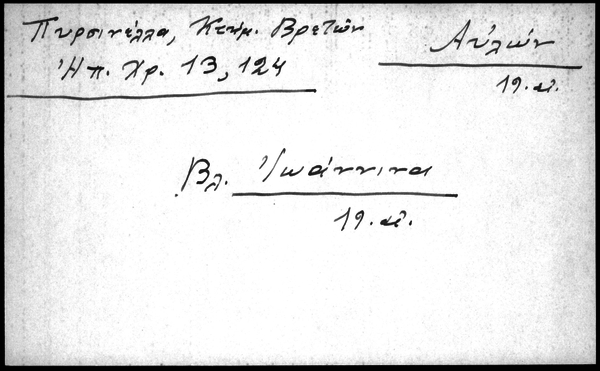 Πυρσινέλλα, Κτημ. Βρετῶν
Ἠπ. Χρ. 13, 124
Αὐλών
19. αἰ.
Βλ. Ἰωάννινα
19. αἰ.